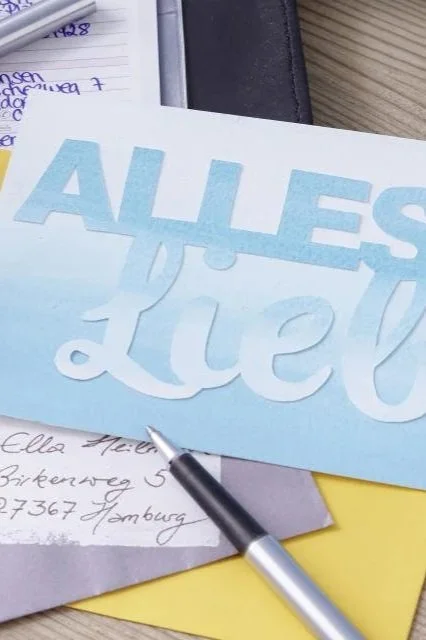 1928
nsen
7
ALLES
Lieb
Ella Heil
Birkenweg 5
27367 Hamburg